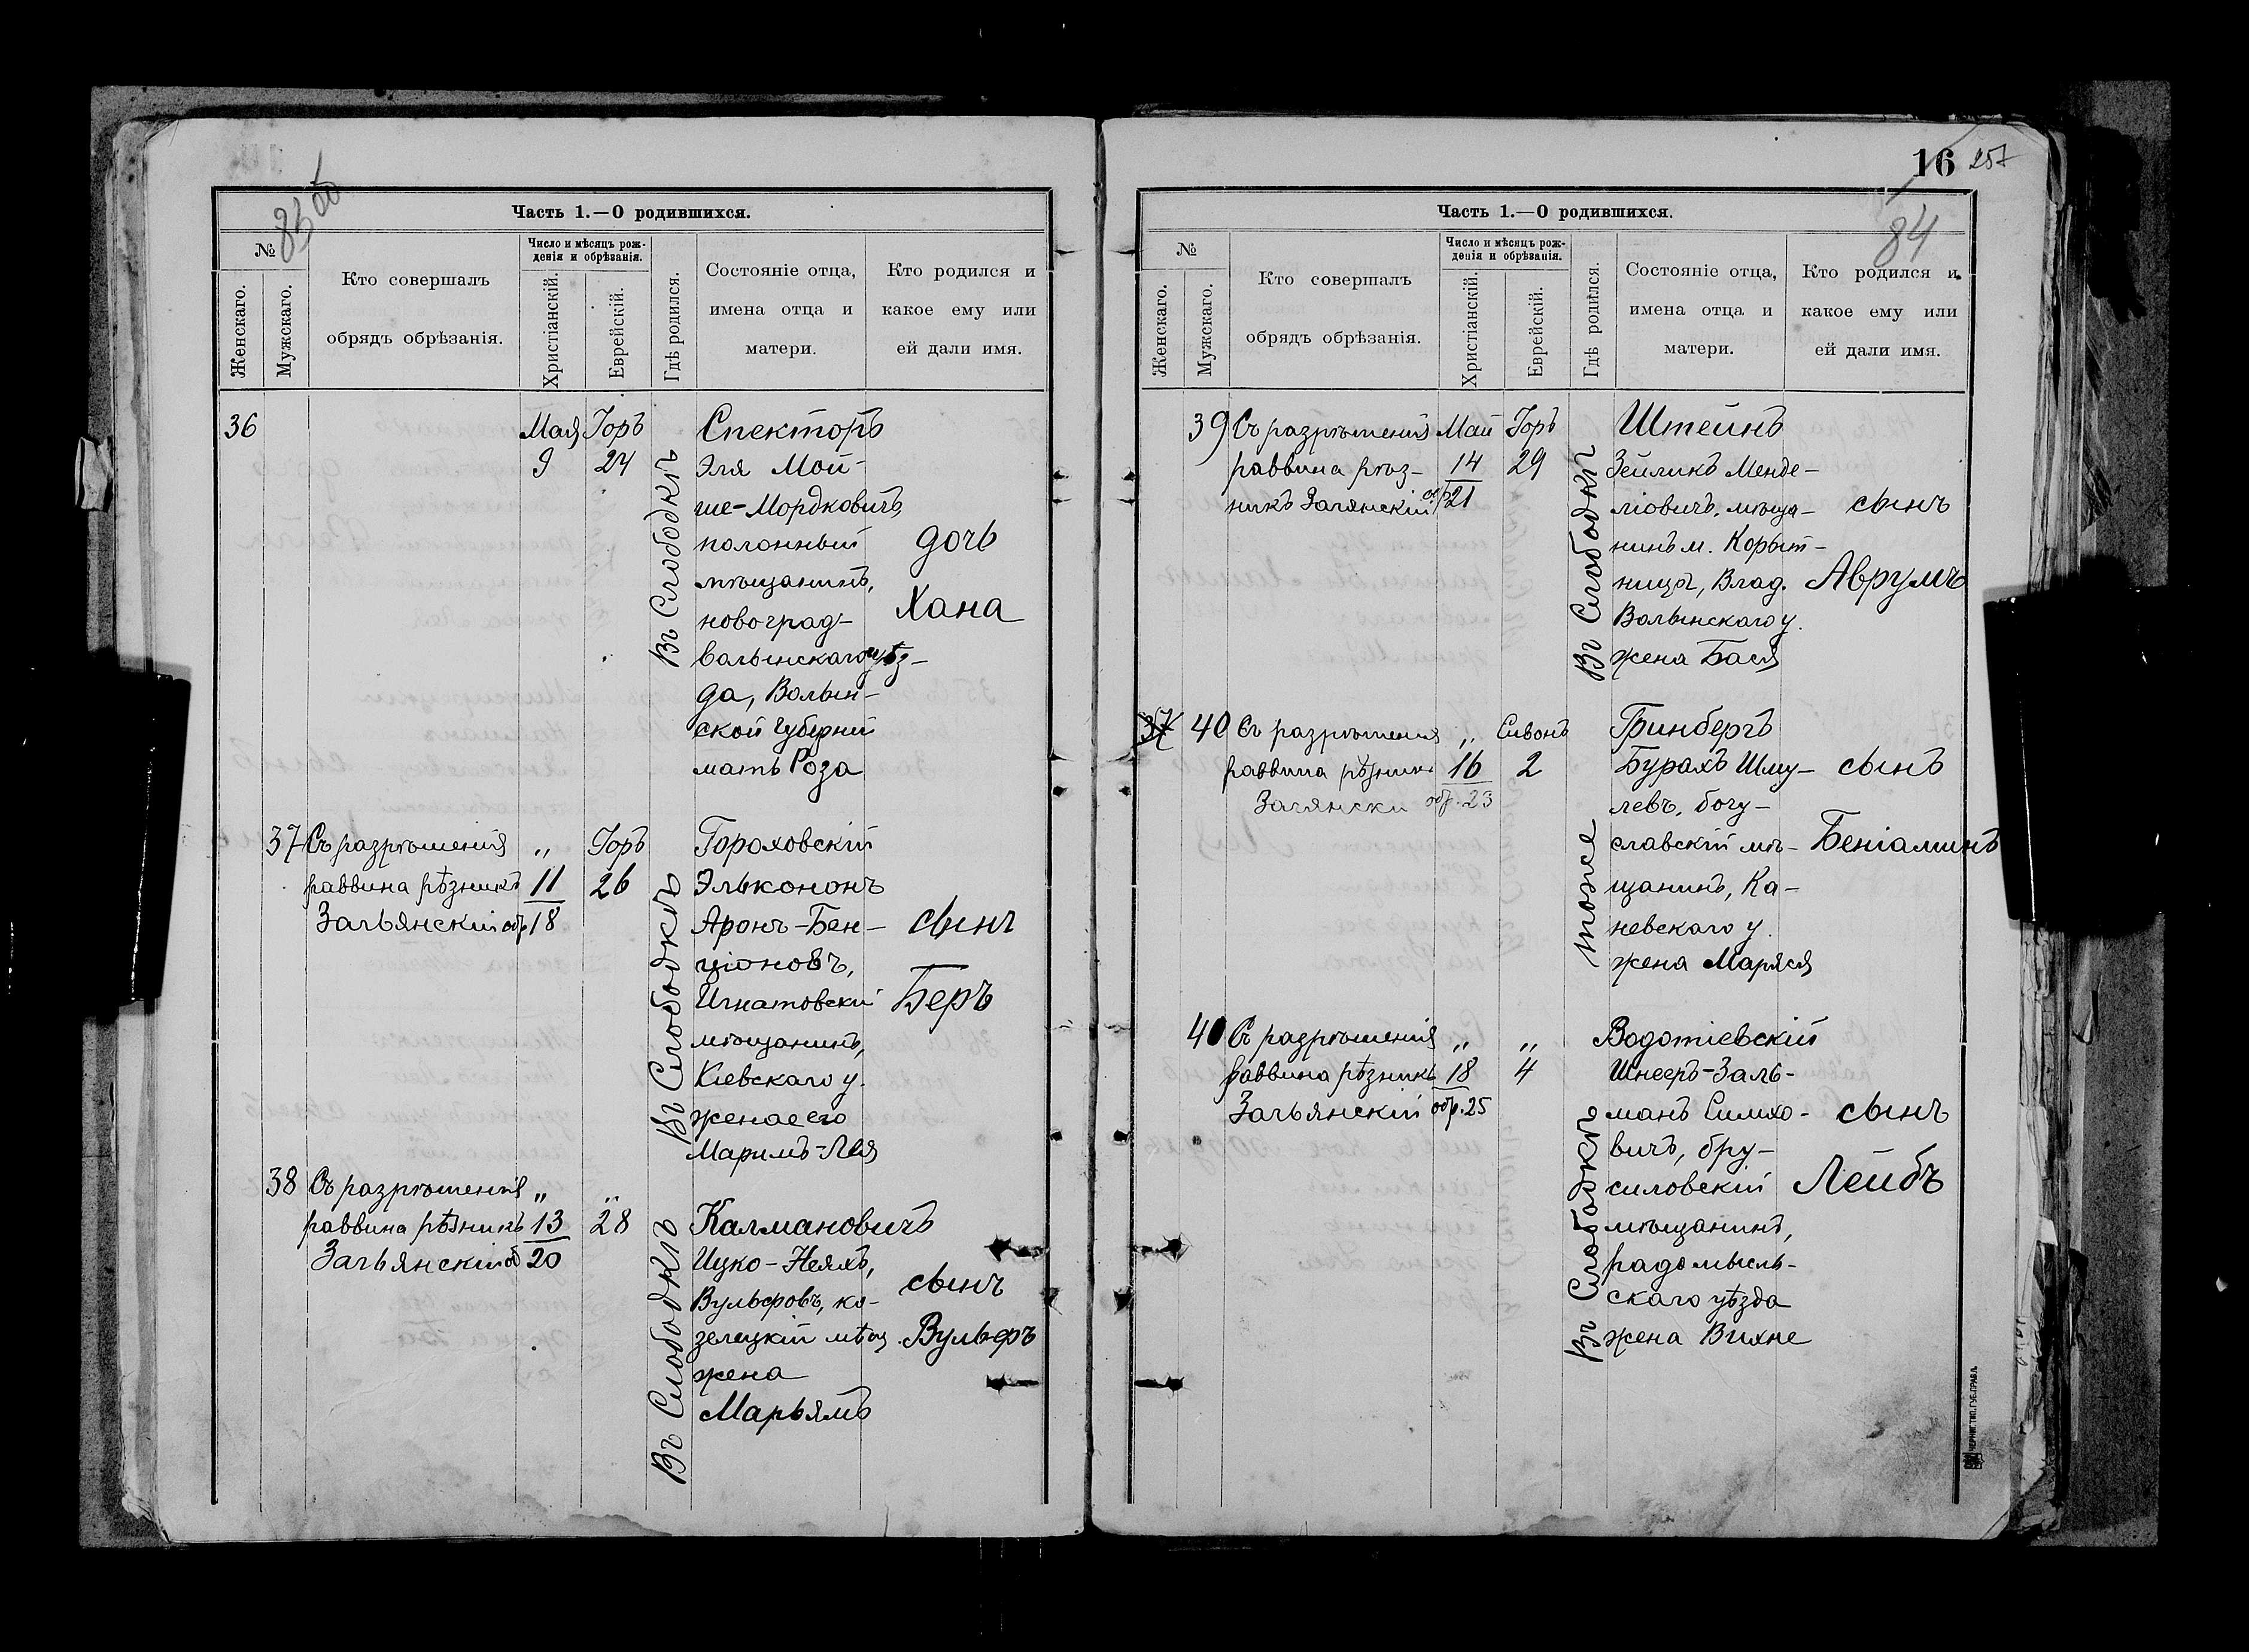 83 об
Часть 1.—О родившихся.
№
Женскаго.
Мужскаго.
Кто совершалъ
обрядъ обрѣзанія.
Число и мѣсяцъ рож-
денія и обрѣзанія.
Христіанскій.
Еврейскій.
Гдѣ родился.
Состояніе отца,
имена отца и
матери.
Кто родился и
какое ему или
ей дали имя.
36
Мая
9
Іоръ
24
Въ Слободкѣ
Спекторъ
Эля Мой-
ше-Мордковичъ,
полонный
мѣщанинъ,
новоград-
волынскаго уѣз-
да, Волын-
ской губерніи
мать Роза
дочь
Хана
37
Съ разрѣшенія
раввина рѣзникъ
Загьянскій обр
„
11
18
Іоръ
26
Въ Слободкѣ
Гороховскій
Элькононъ
Аронъ-Бен-
ціоновъ,
Игнатовскій
мѣщанинъ,
Кіевскаго у.
жена его
Маримъ-Лея
сынъ
Беръ
38
Съ разрѣшенія
раввина рѣзникъ
Загьянскій об
„
13
20
„
28
Въ Слободкѣ
Калмановичъ
Ицко-Неяхъ,
Вульфовъ, ко-
зелецкій мѣщ.
жена
Марьямъ
сынъ
Вульфъ
16
257
84
Часть 1.—О родившихся.
№
Женскаго.
Мужскаго.
Кто совершалъ
обрядъ обрѣзанія.
Число и мѣсяцъ рож-
денія и обрѣзанія.
Христіанскій.
Еврейскій.
Гдѣ родился.
Состояніе отца,
имена отца и
матери.
Кто родился и
какое ему или
ей дали имя.
39
Съ разрѣшенія
раввина рѣз-
никъ Загянскій
Май
14
21
Іоръ
29
Въ Слободкѣ
Штейнъ
Зейликъ Менде-
ліовичъ, мѣща-
нинъ м. Корыт-
ницы, Влад.
Волынскаго у.
жена Бася
сынъ
Аврумъ
40
Съ разрѣшенія
раввина рѣзникъ
Загянски
„
16
обр. 23
Сивонъ
2
тоже
Гринбергъ
Бурахъ Шму-
левъ, богу-
славскій мѣ-
щанинъ, Ка-
невскаго у.
жена Маряся
сынъ
Беніаминъ
40
Съ разрѣшенія
раввина рѣзникъ
Загьянскій
„
18
обр. 25
„
4
Въ Слободкѣ
Водотіевскій
Шнееръ-Заль-
манъ Симхо-
вичъ, бру-
силовскій
мѣщанинъ,
радомысль-
скаго уѣзда
жена Вихне
сынъ
Лейбъ